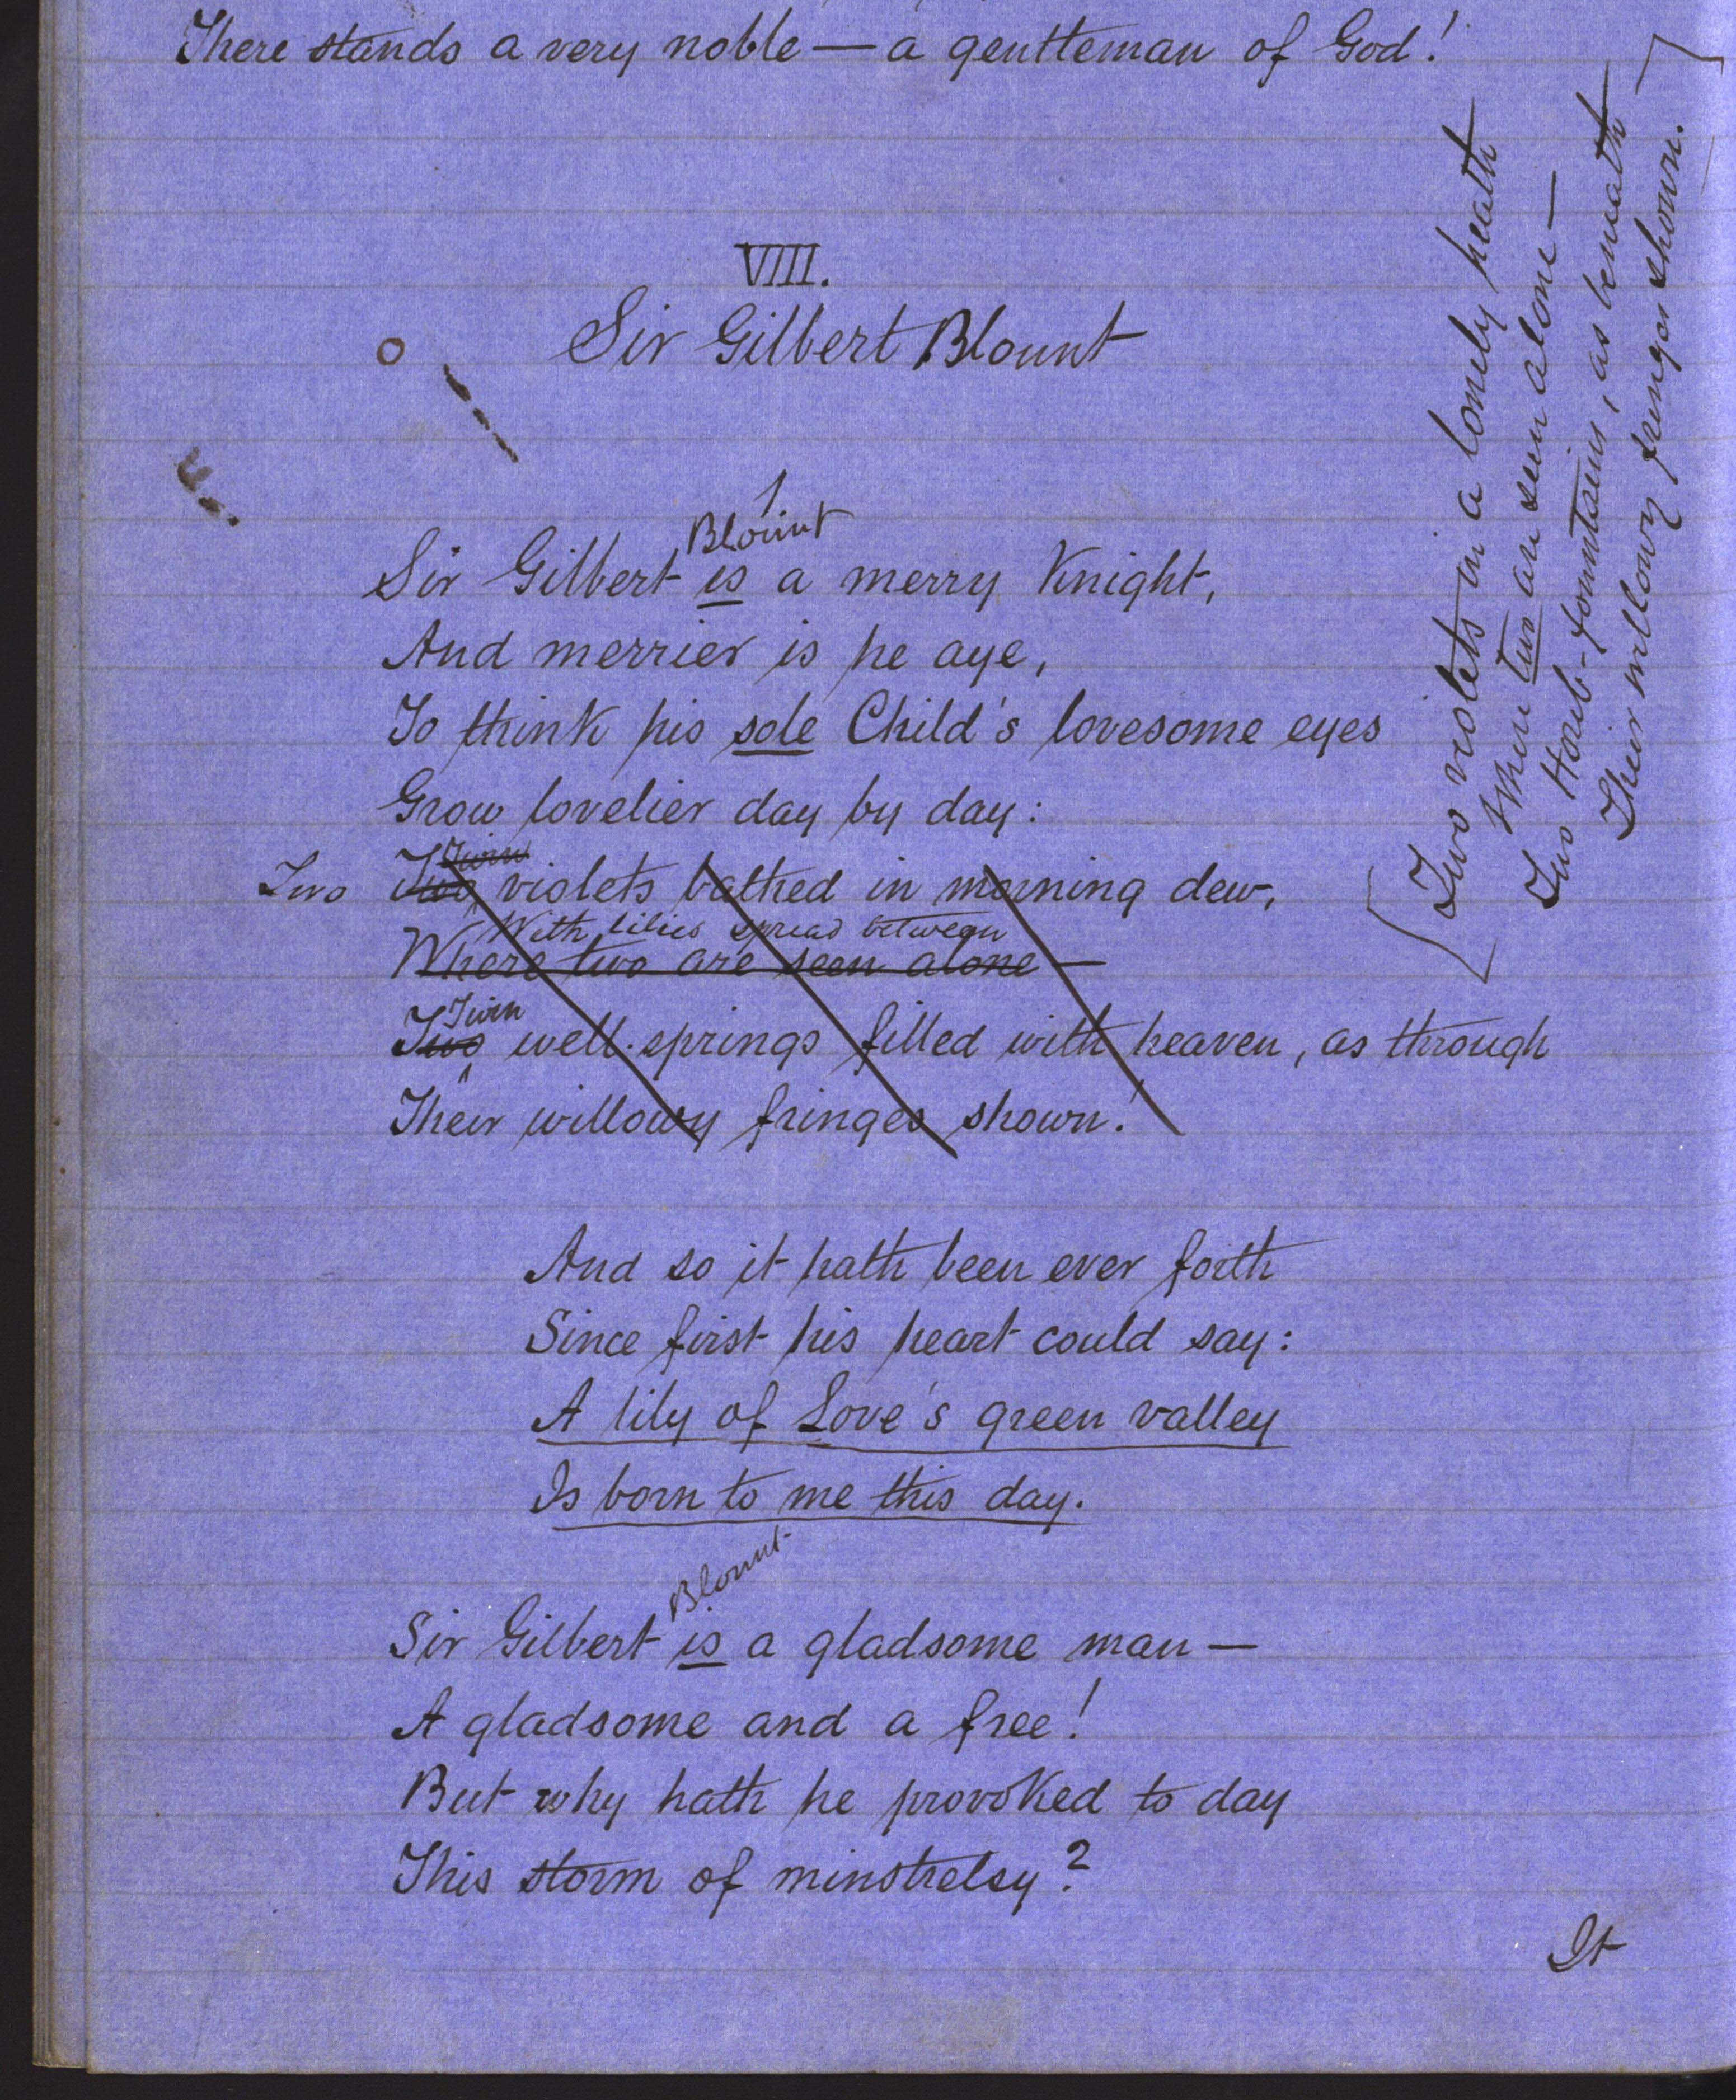 There stands a very noble — a gentleman of God!
VIII.
Sir Gilbert Blount
1
Blount
Sir Gilbert is a merry Knight,
And merrier is he aye,
To think his sole Child's lovesome eyes
Grow lovelier day by day:
Twin
Two Two violets bathed in morning dew,
With lilies spread between
Where two are seen alone —
Twin
Two well-springs filled with heaven, as through
Their willowy fringes shown!
And so it hath been ever forth
Since first his heart could say:
A lily of Love's green valley
Is born to me this day.
Blount
Sir Gilbert is a gladsome man —
A gladsome and a free!
But why hath he provoked to day
This storm of minstrelsy?
It
Two violets in a lonely heath
When two are seen alone —
Two Horeb-fountains, as beneath
Their willowy fringes shown.